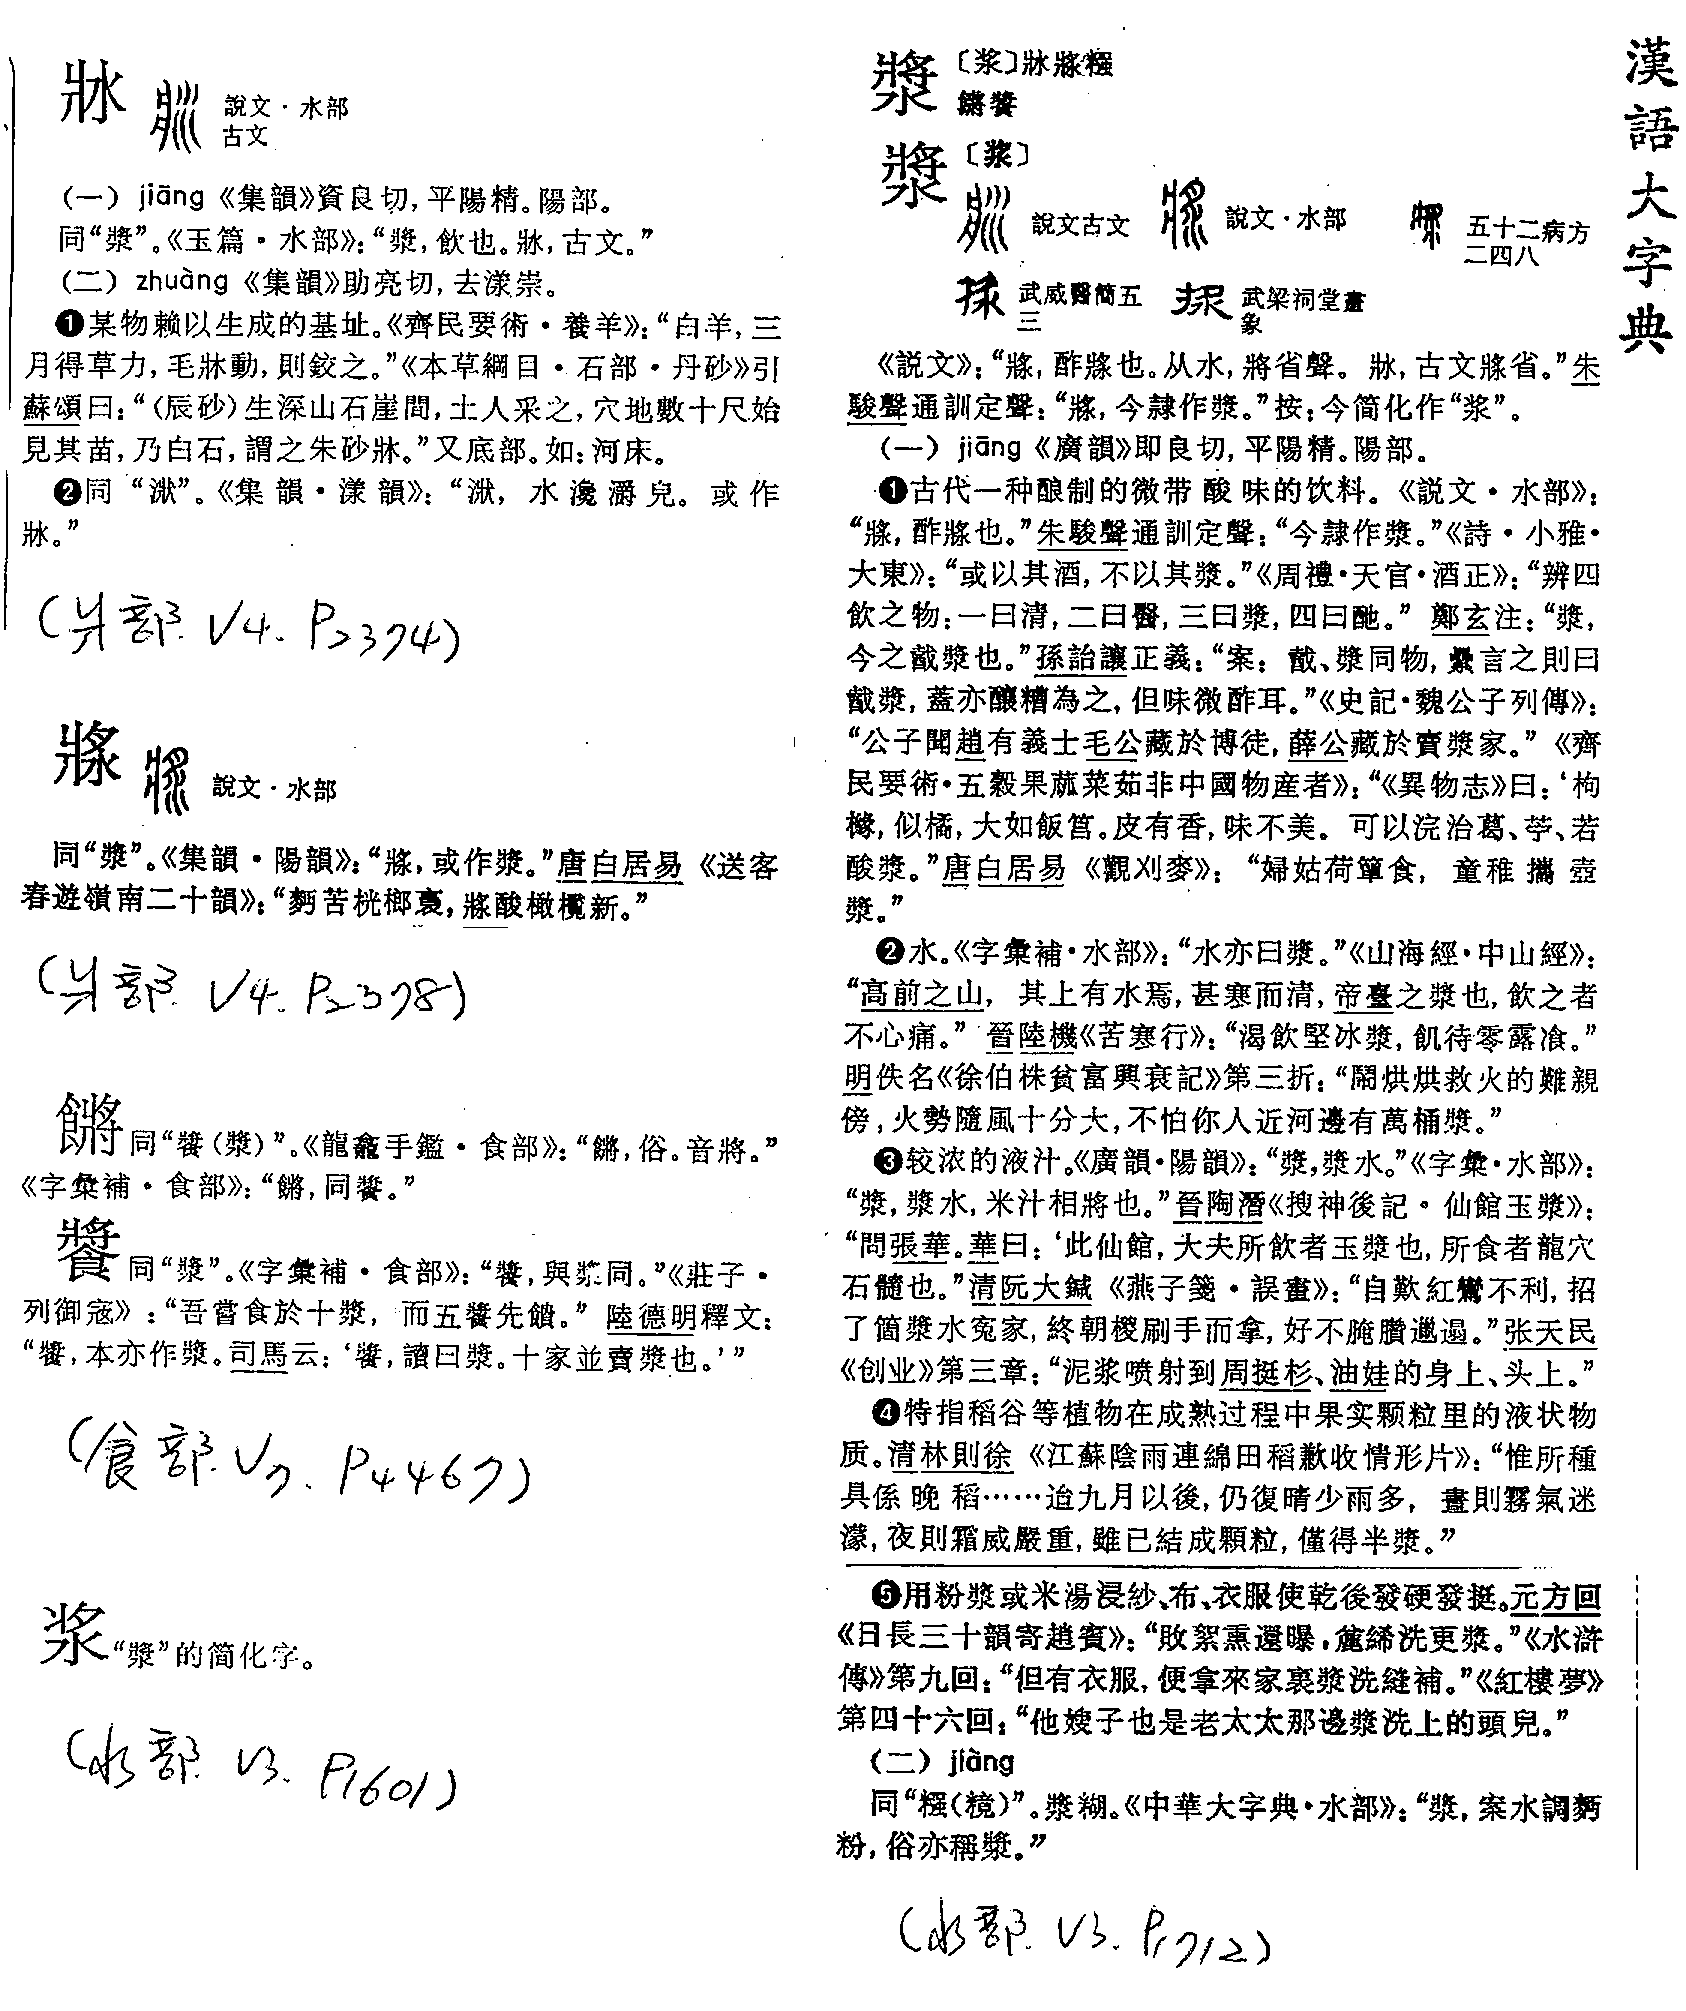 漢語大字典
漿 〔浆〕𤖅𤖛糨
𩜾䬺
漿 〔浆〕
説文古文 説文·水部 五十二病方
二四八
武威醫簡五 武梁祠堂畫
三 象
《説文》：“𤖛，酢𤖛也。从水，將省聲。𤖅，古文𤖛省。”朱
駿聲通訓定聲：“𤖛，今隷作漿。”按：今简化作“浆”。
（一）jiāng《廣韻》即良切，平陽精。陽部。
❶古代一种酿制的微带酸味的饮料。《説文·水部》：
“𤖛，酢𤖛也。”朱駿聲通訓定聲：“今隷作漿。”《詩·小雅·
大東》：“或以其酒，不以其漿。”《周禮·天官·酒正》：“辨四
飲之物：一曰清，二曰醫，三曰漿，四曰酏。”鄭玄注：“漿，
今之截漿也。”孫詒讓正義：“案：截、漿同物，纍言之則曰
截漿，蓋亦釀糟為之，但味微酢耳。”《史記·魏公子列傳》：
“公子聞趙有義士毛公藏於博徒，薛公藏於賣漿家。”《齊
民要術·五穀果蓏菜茹非中國物産者》：“《異物志》曰：‘枸
櫞，似橘，大如飯筥。皮有香，味不美。可以浣治葛、苧、若
酸漿。”唐白居易《觀刈麥》：“婦姑荷簞食，童稚攜壺
漿。”
❷水。《字彙補·水部》：“水亦曰漿。”《山海經·中山經》：
“高前之山，其上有水焉，甚寒而清，帝臺之漿也，飲之者
不心痛。”晉陸機《苦寒行》：“渴飲堅冰漿，飢待零露飡。”
明佚名《徐伯株貧富興衰記》第三折：“鬧烘烘救火的難親
傍，火勢隨風十分大，不怕你人近河邊有萬桶漿。”
❸较浓的液汁。《廣韻·陽韻》：“漿，漿水。”《字彙·水部》：
“漿，漿水，米汁相將也。”晉陶潛《搜神後記·仙館玉漿》：
“問張華。華曰：‘此仙館，大夫所飲者玉漿也，所食者龍穴
石髓也。”清阮大鋮《燕子箋·誤畫》：“自歎紅鸞不利，招
了箇漿水冤家，終朝㮟刷手而拿，好不腌臢邋遢。”张天民
《创业》第三章：“泥浆喷射到周挺杉、油娃的身上、头上。”
❹特指稻谷等植物在成熟过程中果实颗粒里的液状物
质。清林則徐《江蘇陰雨連綿田稻歉收情形片》：“惟所種
具係晚稻……迨九月以後，仍復晴少雨多，晝則霧氣迷
濛，夜則霜威嚴重，雖已結成顆粒，僅得半漿。”
❺用粉漿或米湯浸紗、布、衣服使乾後發硬發挺。元方回
《日長三十韻寄趙賓》：“敗絮熏還曝，麄絺洗更漿。”《水滸
傳》第九回：“但有衣服，便拿來家裏漿洗縫補。”《紅樓夢》
第四十六回：“他嫂子也是老太太那邊漿洗上的頭兒。”
（二）jiàng
同“糨（糡）”。漿糊。《中華大字典·水部》：“漿，案水調麪
粉，俗亦稱漿。”
（水部. V3. P1712）
𤖅 説文·水部
古文
（一）jiāng《集韻》資良切，平陽精。陽部。
同“漿”。《玉篇·水部》：“漿，飲也。𤖅，古文。”
（二）zhuàng《集韻》助亮切，去漾崇。
❶某物赖以生成的基址。《齊民要術·養羊》：“白羊，三
月得草力，毛𤖅動，則鉸之。”《本草綱目·石部·丹砂》引
蘇頌曰：“（辰砂）生深山石崖間，土人采之，穴地數十尺始
見其苗，乃白石，謂之朱砂𤖅。”又底部。如：河床。
❷同“㳤”。《集韻·漾韻》：“㳤，水瀺灂皃。或作
𤖅。”
（爿部. V4. P2374）
𤖛 説文·水部
同“漿”。《集韻·陽韻》：“𤖛，或作漿。”唐白居易《送客
春遊嶺南二十韻》：“麪苦桄榔裛，𤖛酸橄欖新。”
（爿部. V4. P2378）
𩜾 同“䬺（漿）”。《龍龕手鑑·食部》：“𩜾，俗。音將。”
《字彙補·食部》：“𩜾，同䬺。”
䬺 同“漿”。《字彙補·食部》：“䬺，與漿同。”《莊子·
列御寇》：“吾嘗食於十漿，而五䬺先饋。”陸德明釋文：
“䬺，本亦作漿。司馬云：‘䬺，讀曰漿。十家並賣漿也。’”
（食部. V7. P4467）
浆 “漿”的简化字。
（水部. V3. P1601）